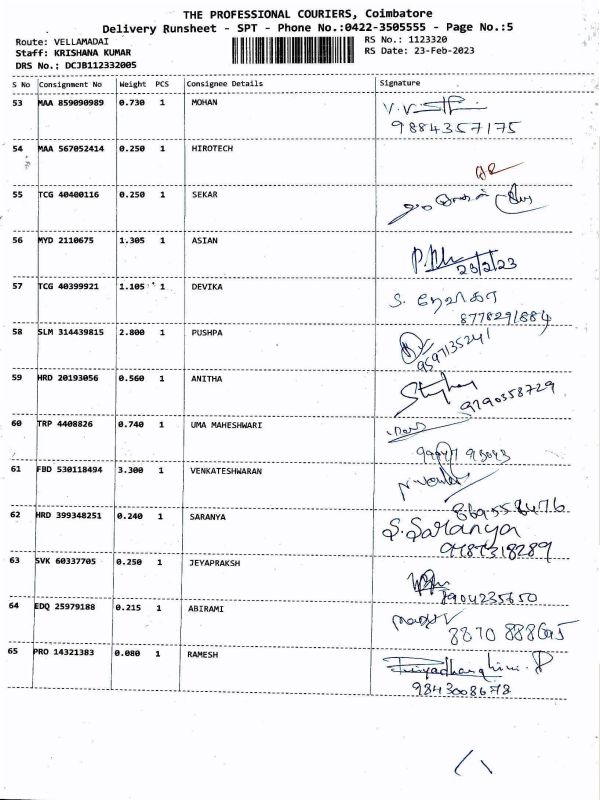 THE PROFESSIONAL COURIERS, Coimbatore
Delivery Runsheet - SPT - Phone No.:0422-3505555 - Page No.:5
Route: VELLAMADAI
Staff: KRISHANA KUMAR
DRS No.: DCJB112332005
RS No.: 1123320
RS Date: 23-Feb-2023
S No Consignment No Weight PCS Consignee Details Signature
53 MAA 859090989 0.730 1 MOHAN
9884357175
54 MAA 567052414 0.250 1 HIROTECH
55 TCG 40400116 0.250 1 SEKAR
56 MYD 2110675 1.305 1 ASIAN
23/2/23
57 TCG 40399921 1.105 1 DEVIKA
S. தேவிகா
8778291884
58 SLM 314439815 2.800 1 PUSHPA
9597135241
59 HRD 20193056 0.560 1 ANITHA
9790358729
60 TRP 4408826 0.740 1 UMA MAHESHWARI
61 FBD 530118494 3.300 1 VENKATESHWARAN
62 HRD 399348251 0.240 1 SARANYA
S. Saranya
9787318289
63 SVK 60337705 0.250 1 JEYAPRAKSH
8904235650
64 EDQ 25979188 0.215 1 ABIRAMI
8870 888695
65 PRO 14321383 0.080 1 RAMESH
Priyadharshini. P
9843008678